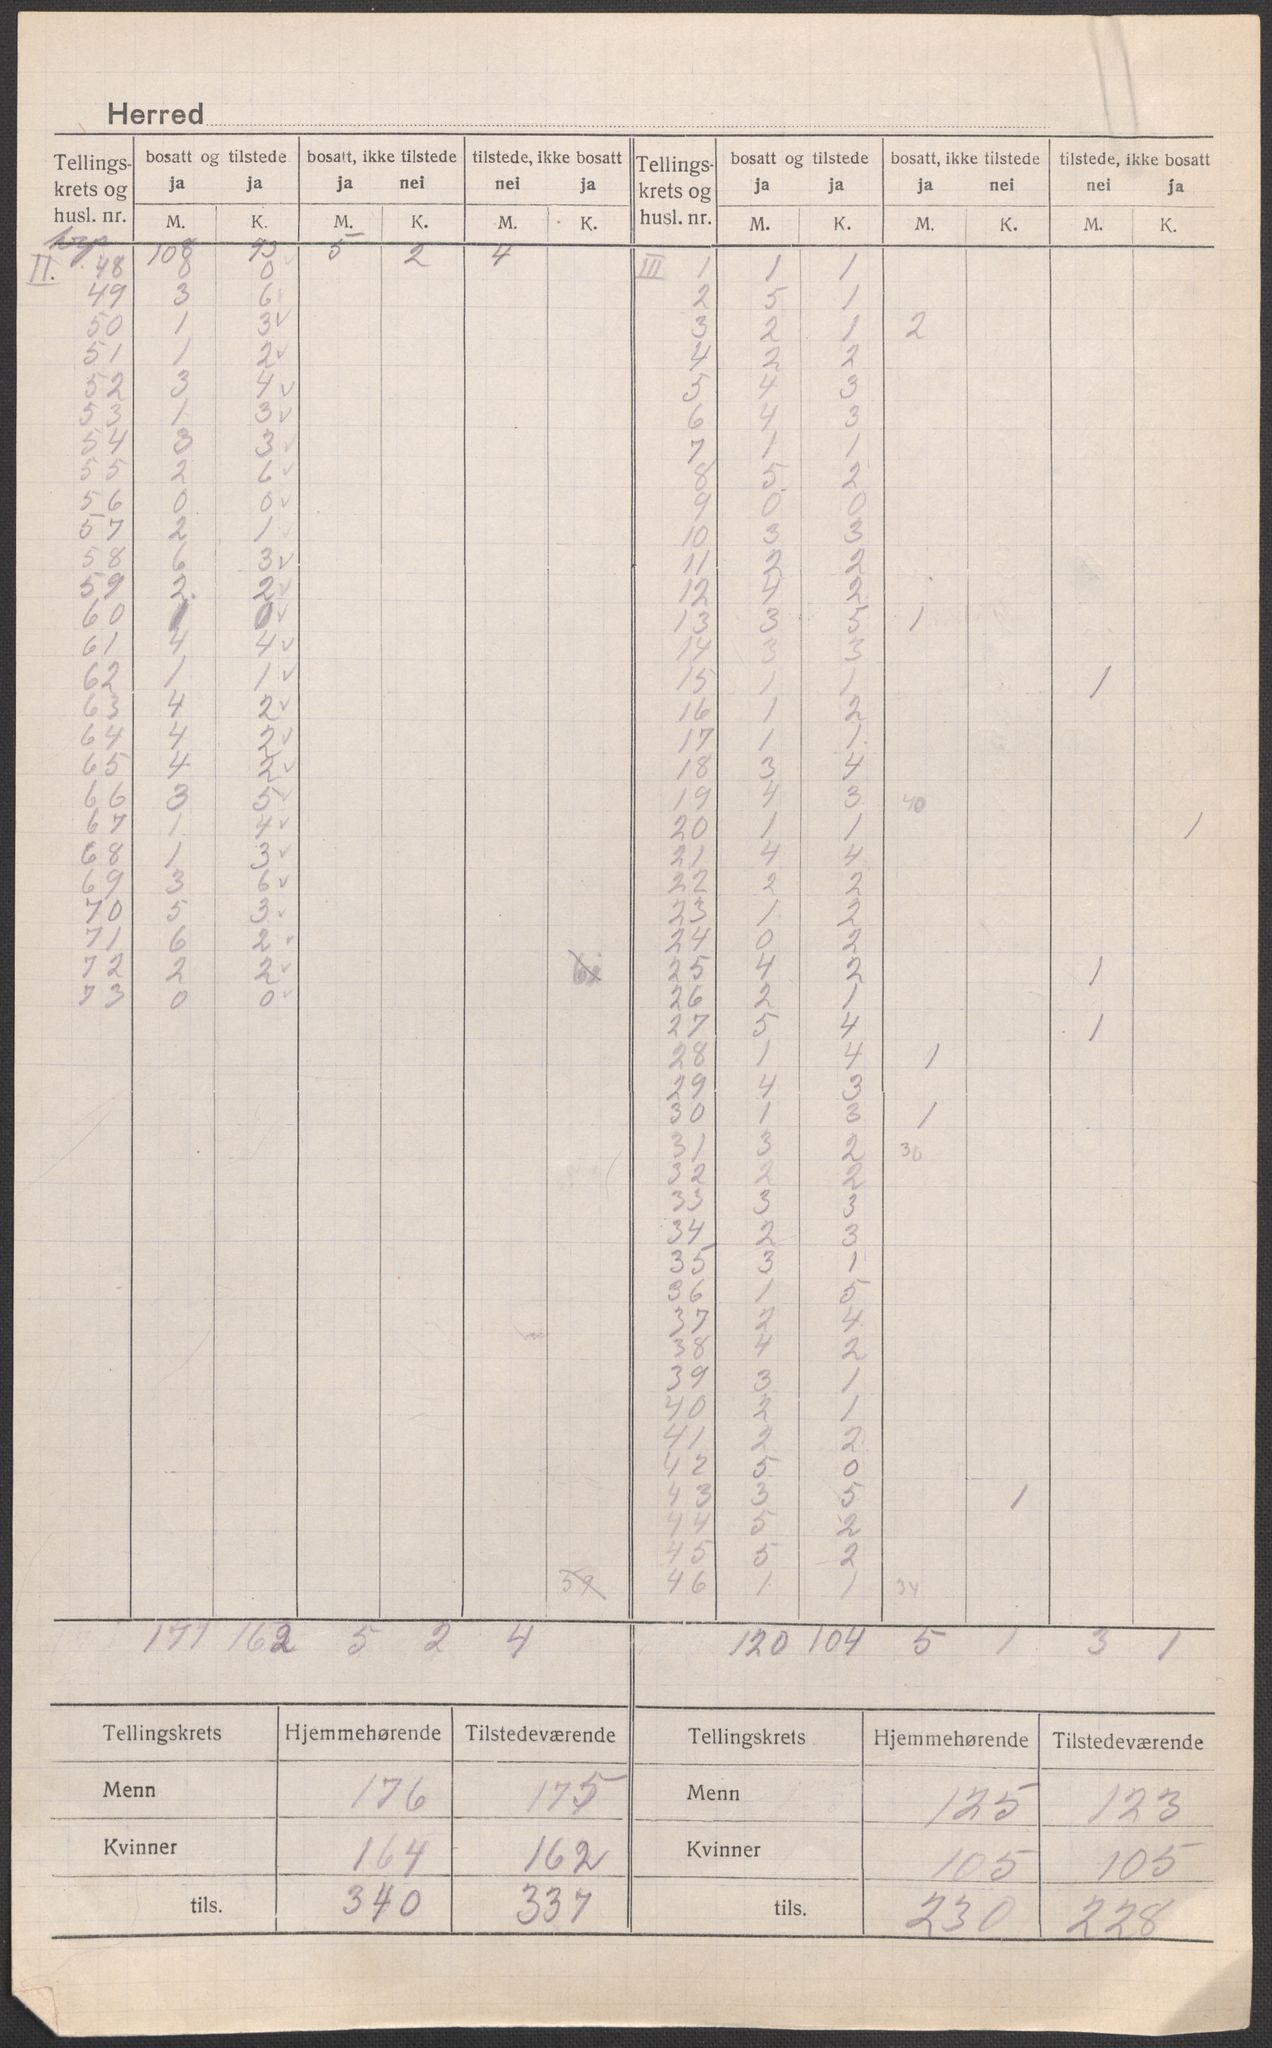 Herred
Tellings-krets og husl. nr. | bosatt og tilstede ja ja M. K. | bosatt, ikke tilstede ja nei M. K. | tilstede, ikke bosatt nei ja M. K. | Tellings-krets og husl. nr. | bosatt og tilstede ja ja M. K. | bosatt, ikke tilstede ja nei M. K. | tilstede, ikke bosatt nei ja M. K.
108 93 5 2 4
II. 48 8 0 III 1 1 1
49 3 6 2 5 1
50 1 3 3 2 1 2
51 1 2 4 2 2
52 3 4 5 4 3
53 1 3 6 4 3
54 3 3 7 1 1
55 2 6 8 5 2
56 0 0 9 0 0
57 2 1 10 3 3
58 6 3 11 2 2
59 2 2 12 4 2
60 1 0 13 3 5 1
61 4 4 14 3 3
62 1 1 15 1 1 1
63 4 2 16 1 2
64 4 2 17 1 1
65 4 2 18 3 4
66 3 5 19 4 3 40
67 1 4 20 1 1 1
68 1 3 21 4 4
69 3 6 22 2 2
70 5 3 23 1 2
71 6 2 24 0 2
72 2 2 25 4 2 1
73 0 0 26 2 1
27 5 4 1
28 1 4 1
29 4 3
30 1 3 1
31 3 2 30
32 2 2
33 3 3
34 2 3
35 3 1
36 1 5
37 2 4
38 4 2
39 3 1
40 2 1
41 2 2
42 5 0
43 3 5 1
44 5 2
45 5 2
59 46 1 1 34
171 162 5 2 4 120 104 5 1 3 1
Tellingskrets Hjemmehørende Tilstedeværende Tellingskrets Hjemmehørende Tilstedeværende
Menn 176 175 Menn 125 123
Kvinner 164 162 Kvinner 105 105
tils. 340 337 tils. 230 228